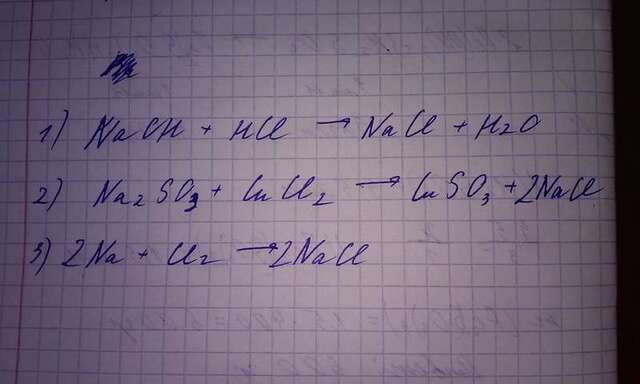 1) NaOH + HCl → NaCl + H2O
2) Na2SO3 + CuCl2 → CuSO3 + 2NaCl
3) 2Na + Cl2 → 2NaCl